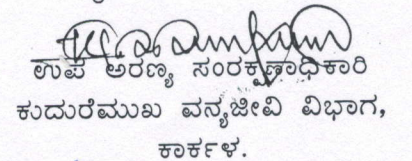 ಉಪ ಅರಣ್ಯ ಸಂರಕ್ಷಣಾಧಿಕಾರಿ
ಕುದುರೆಮುಖ ವನ್ಯಜೀವಿ ವಿಭಾಗ,
ಕಾರ್ಕಳ.